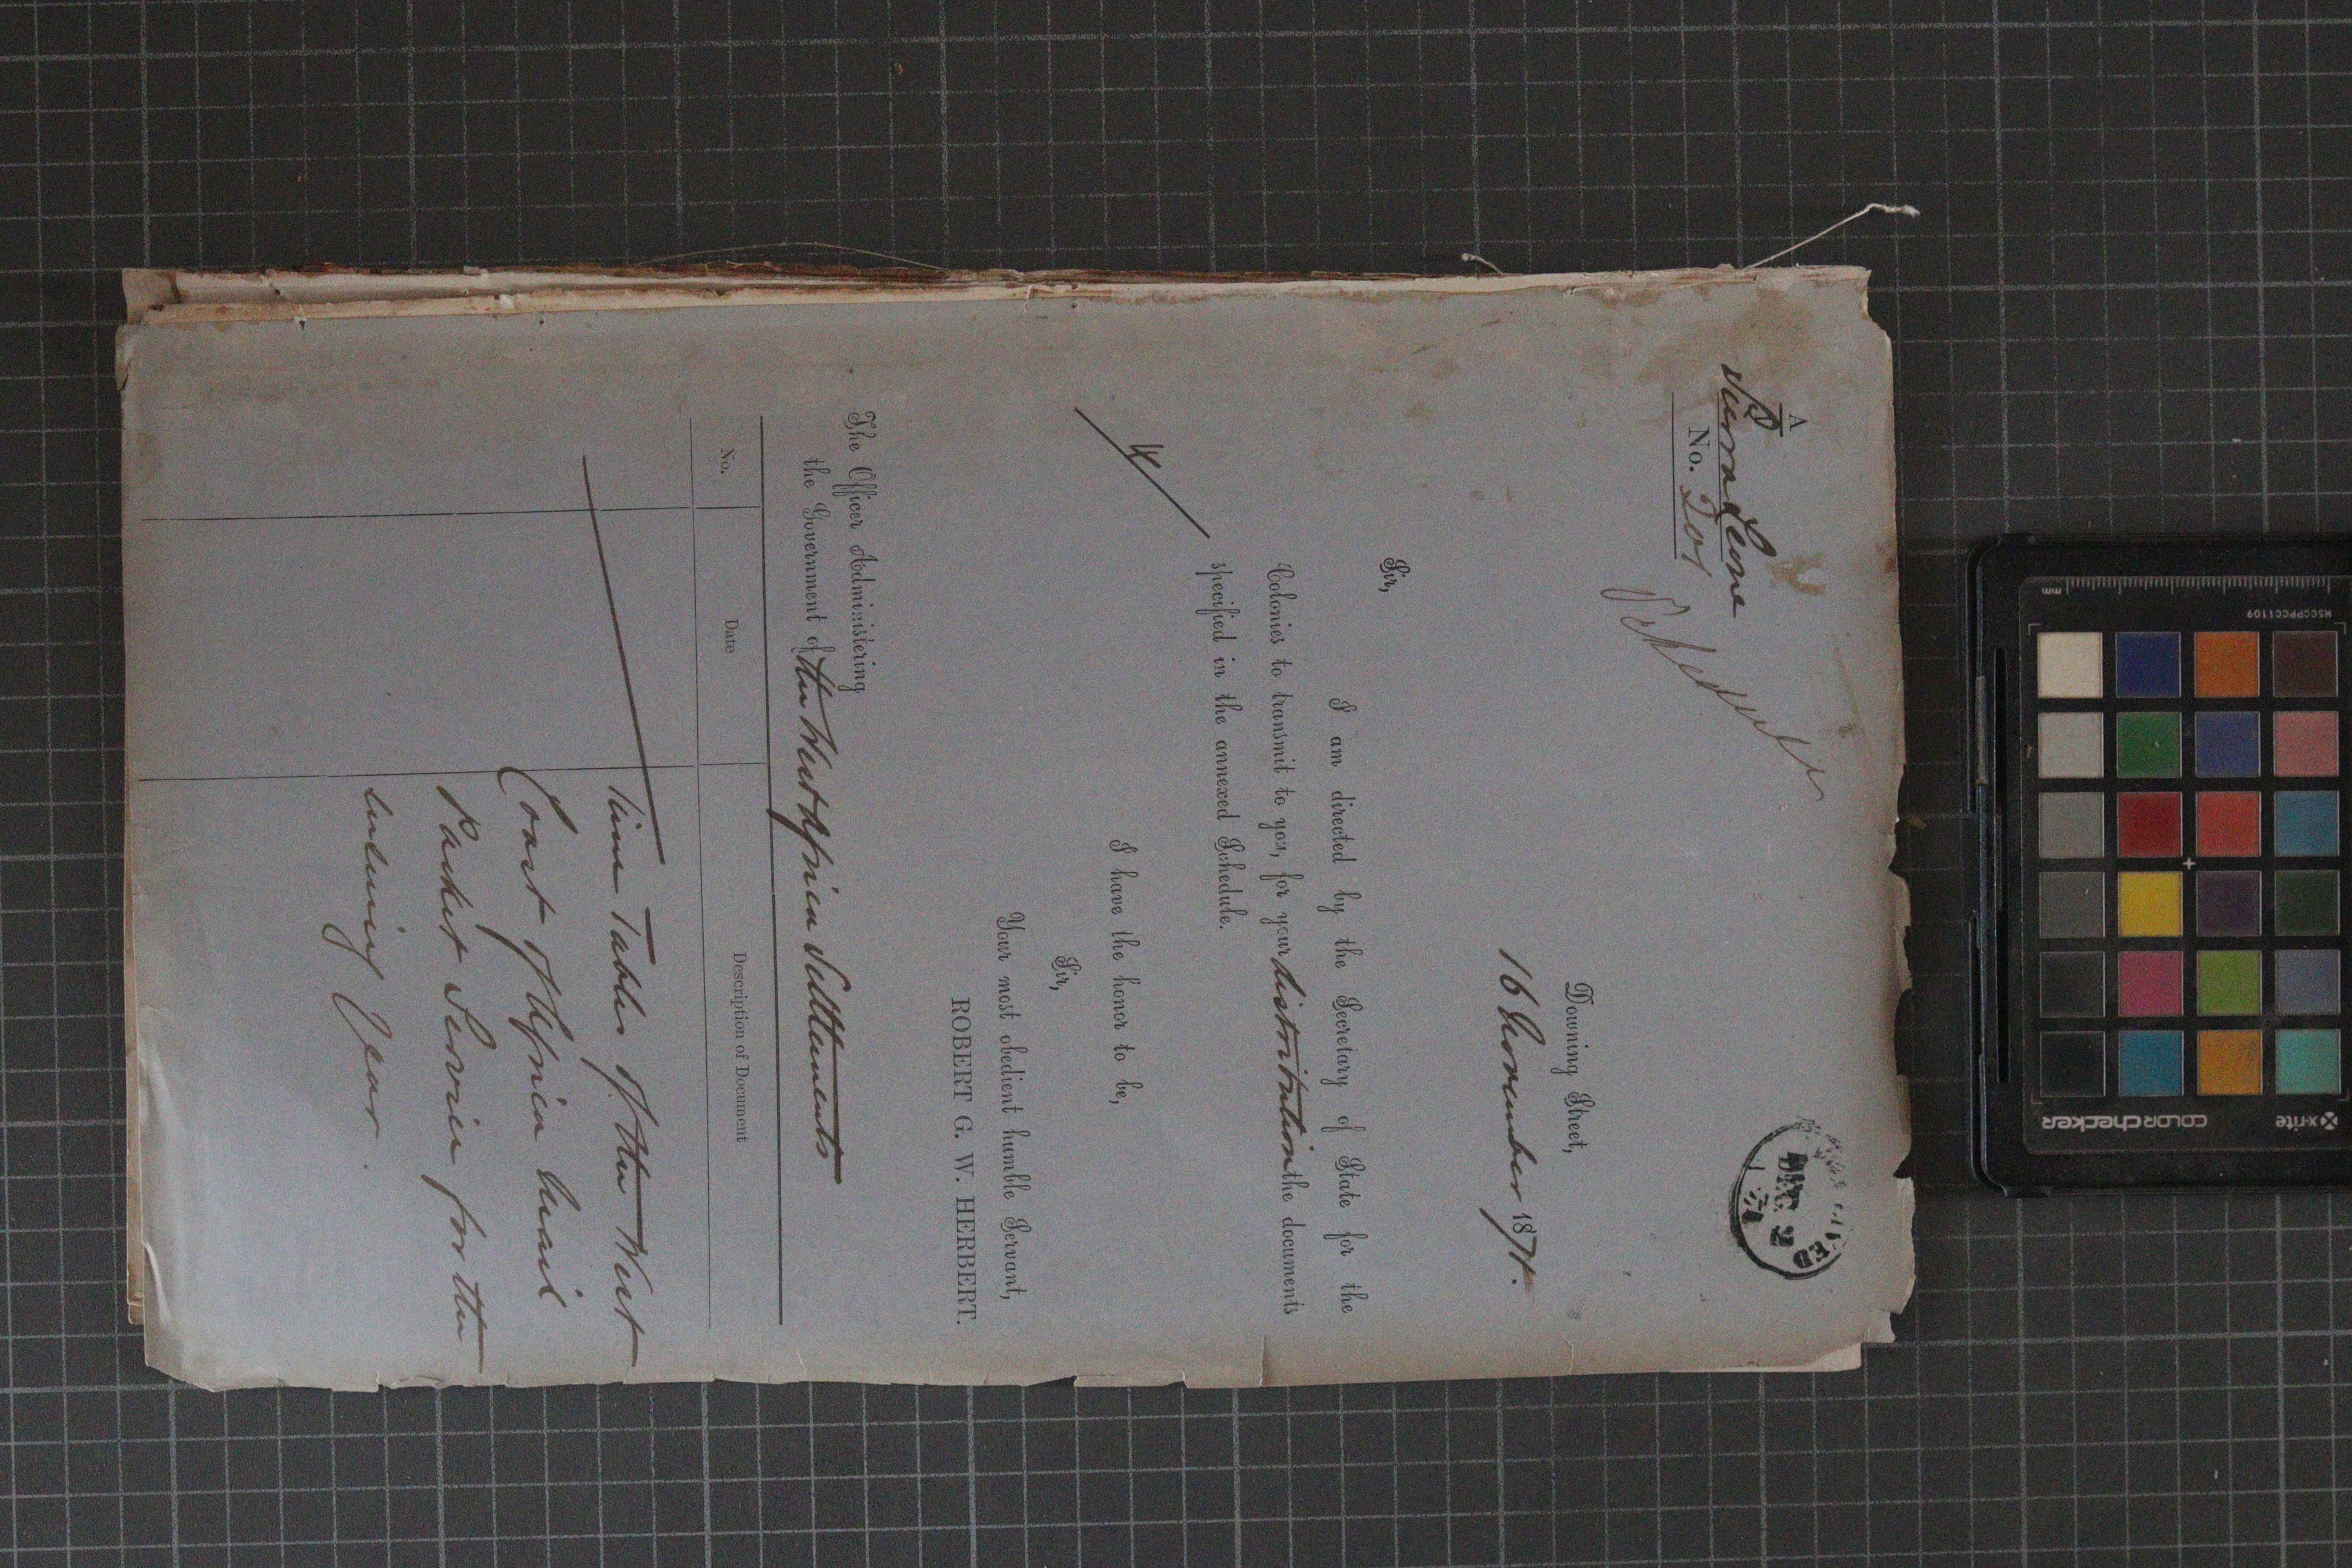 A
Sierra Leone
No. 201
RECEIVED
DEC 2
71
Downing Street,
16 November 1871.
Sir,
I am directed by the Secretary of State for the
Colonies to transmit to you, for your distribution the documents
specified in the annexed Schedule.
4/
I have the honor to be,
Sir,
Your most obedient humble Servant,
ROBERT G. W. HERBERT.
The Officer Administering
the Government of the West Africa Settlements
No.
Date
Description of Document
Time Tables of the West
Coast of Africa Mail
Packet Service for the
ensuing Year.
mm
MSCCPPCC1109
x-rite
colorchecker